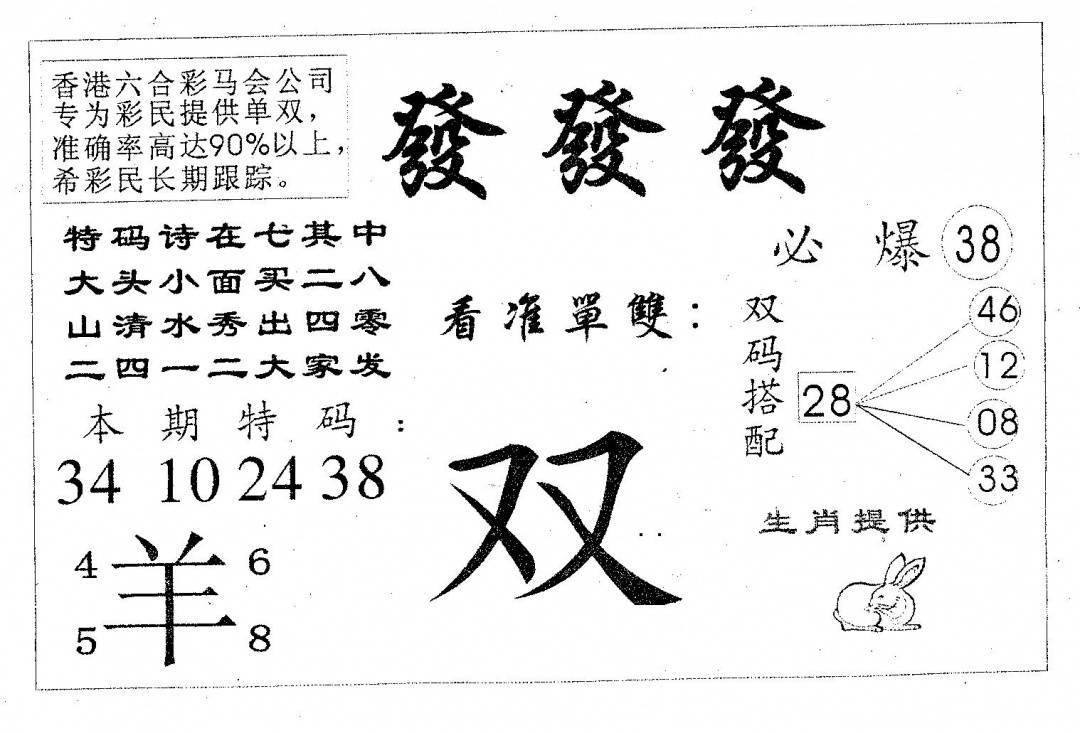 香港六合彩马会公司
专为彩民提供单双，
准确率高达90%以上，
希彩民长期跟踪。
發發發
特码诗在七其中
大头小面买二八
山清水秀出四零
二四一二大家发
必爆 38
看准單雙：
双码搭配
28
46
12
08
33
本期特码：
34 10 24 38
双
生肖提供
4 6
羊
5 8